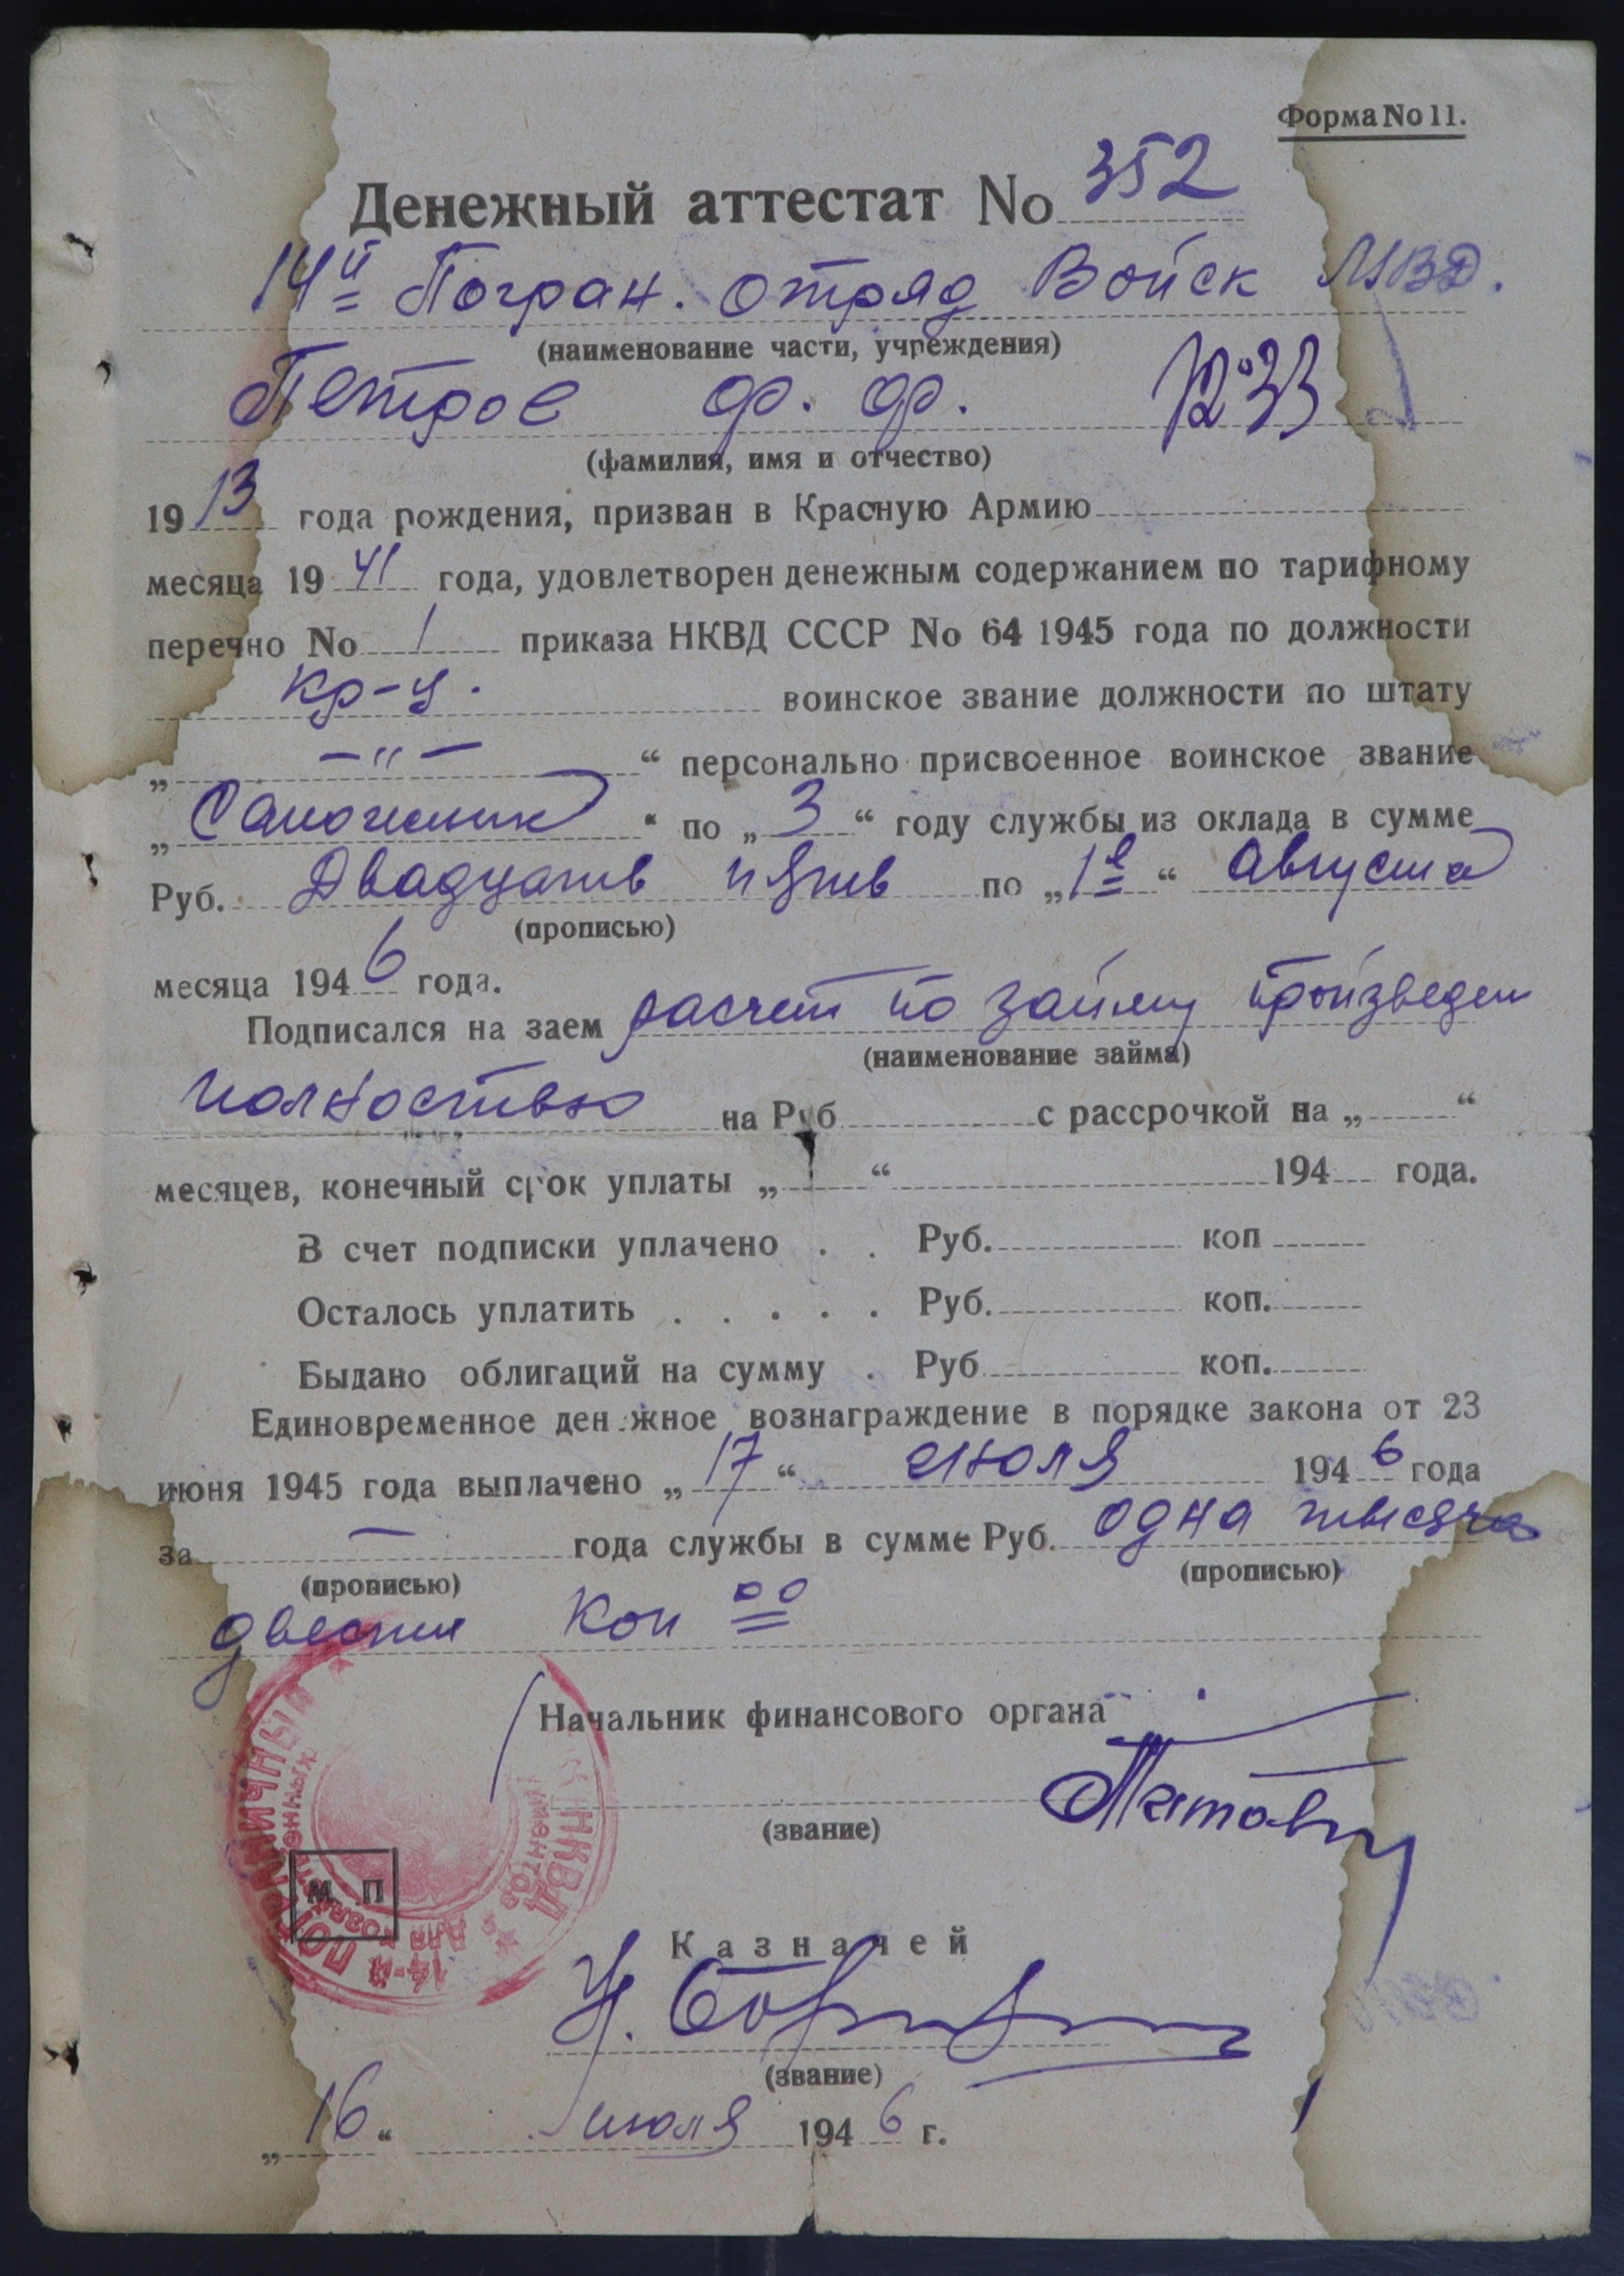 Форма No 11.
Денежный аттестат No 352
14й Погран. отряд Войск МВД.
(наименование части, учреждения)
Петров Ф. Ф.
(фамилия, имя и отчество)
1913 года рождения, призван в Красную Армию
месяца 1941 года, удовлетворен денежным содержанием по тарифному
перечню No 1 приказа НКВД СССР No 64 1945 года по должности
кр-ц. воинское звание должности по штату
„ —"— “ персонально присвоенное воинское звание
„ Сапожник “ по „ 3 “ году службы из оклада в сумме
Руб. Двадцать пять по „ 1е “ августа
(прописью)
месяца 1946 года.
Подписался на заем расчет по займу произведен
(наименование займа)
полностью на Руб с рассрочкой на „ “
месяцев, конечный срок уплаты „ “ 194 года.
В счет подписки уплачено . . Руб. коп
Осталось уплатить . . . . . Руб. коп.
Выдано облигаций на сумму . Руб коп.
Единовременное денежное вознаграждение в порядке закона от 23
июня 1945 года выплачено „ 17 “ июля 1946 года
за — года службы в сумме Руб. одна тысяча
(прописью) (прописью)
двести Коп 00
Начальник финансового органа
(звание)
14-Й ПОГРАНИЧНЫЙ НКВД
ДЛЯ
М. П
Казначей
(звание)
„ 16 “ июля 1946 г.